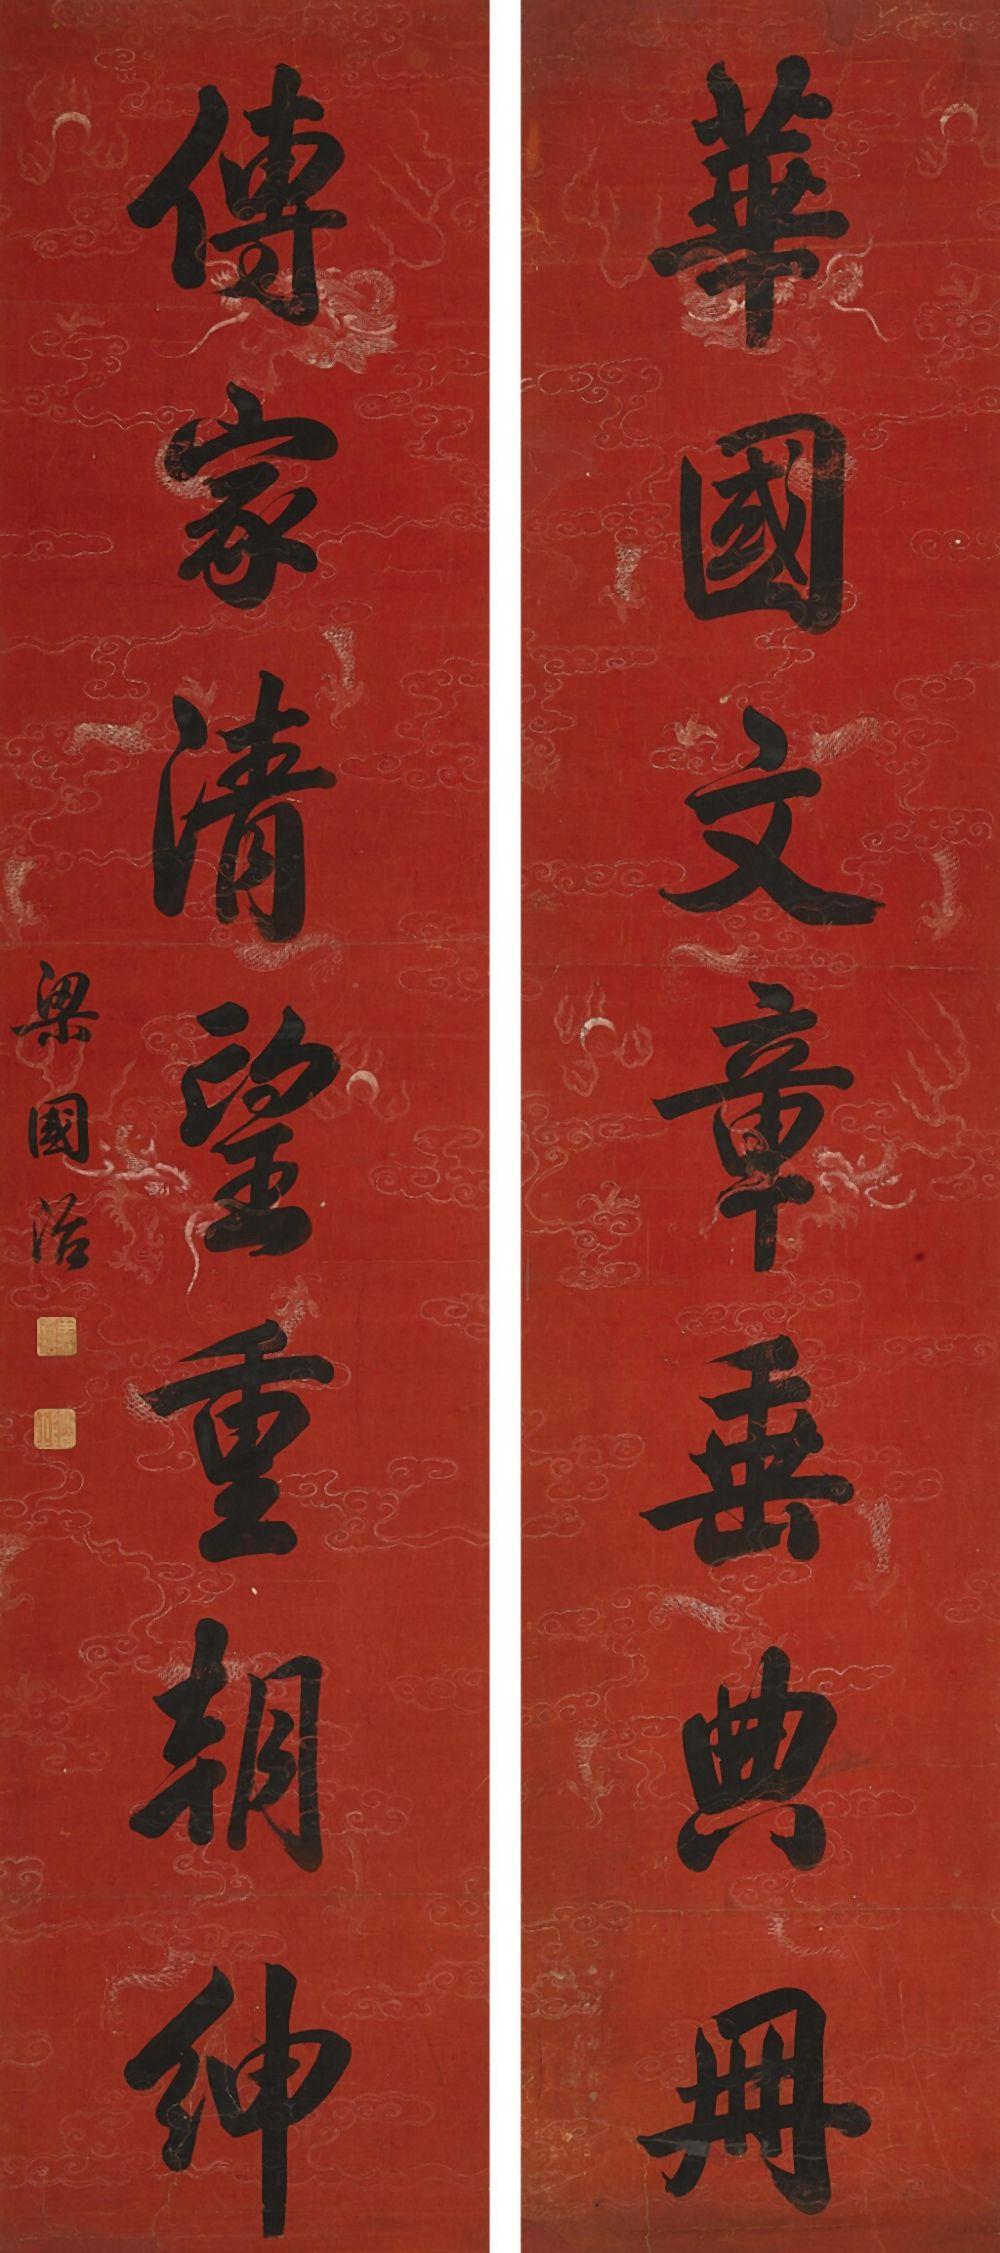 華國文章垂典冊
傳家清望重朝紳
梁國治